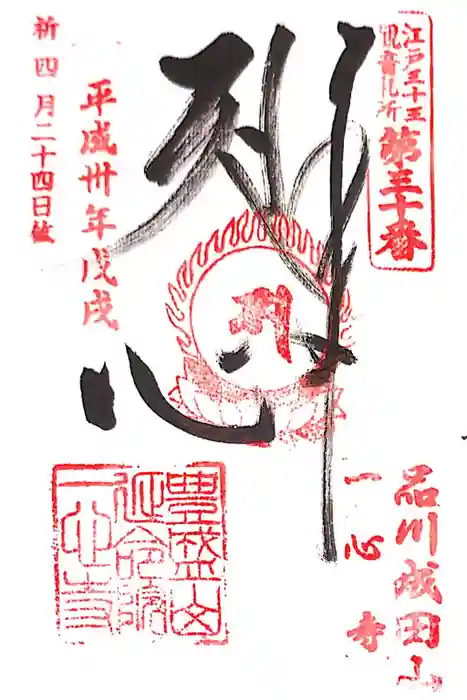 江戸三十三
観音札所
第三十番
心
平成卅年戊戌
四月二十四日
品川成田山
一心寺
豊盛山
延命院
一心寺